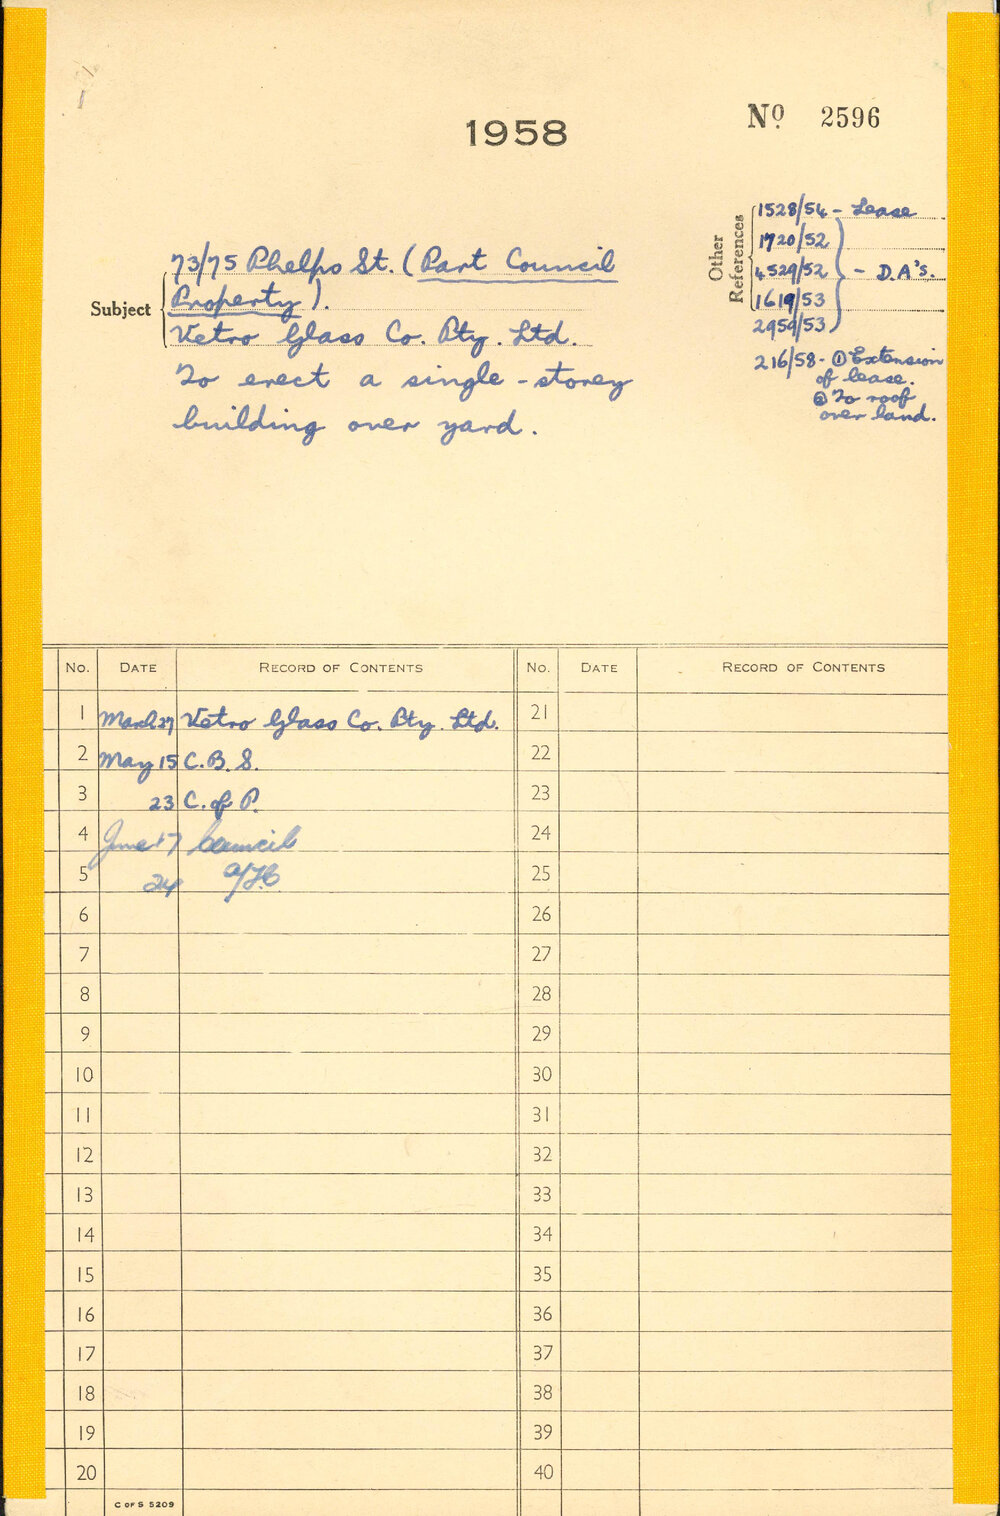 1958
Nº 2596
Other References
1528/54 - Lease
1720/52
4529/52 - D.A's.
1619/53
2959/53
216/58 - ① Extension
of lease.
② To roof
over land.
Subject
73/75 Phelps St. (Part Council
Property).
Vetro Glass Co. Pty. Ltd.
To erect a single-storey
building over yard.
No. DATE RECORD OF CONTENTS No. DATE RECORD OF CONTENTS
1 March 27 Vetro Glass Co. Pty. Ltd. 21
2 May 15 C.B.S. 22
3 23 C. of P. 23
4 June 17 Council 24
5 24 25
6 26
7 27
8 28
9 29
10 30
11 31
12 32
13 33
14 34
15 35
16 36
17 37
18 38
19 39
20 40
C OF S 5209